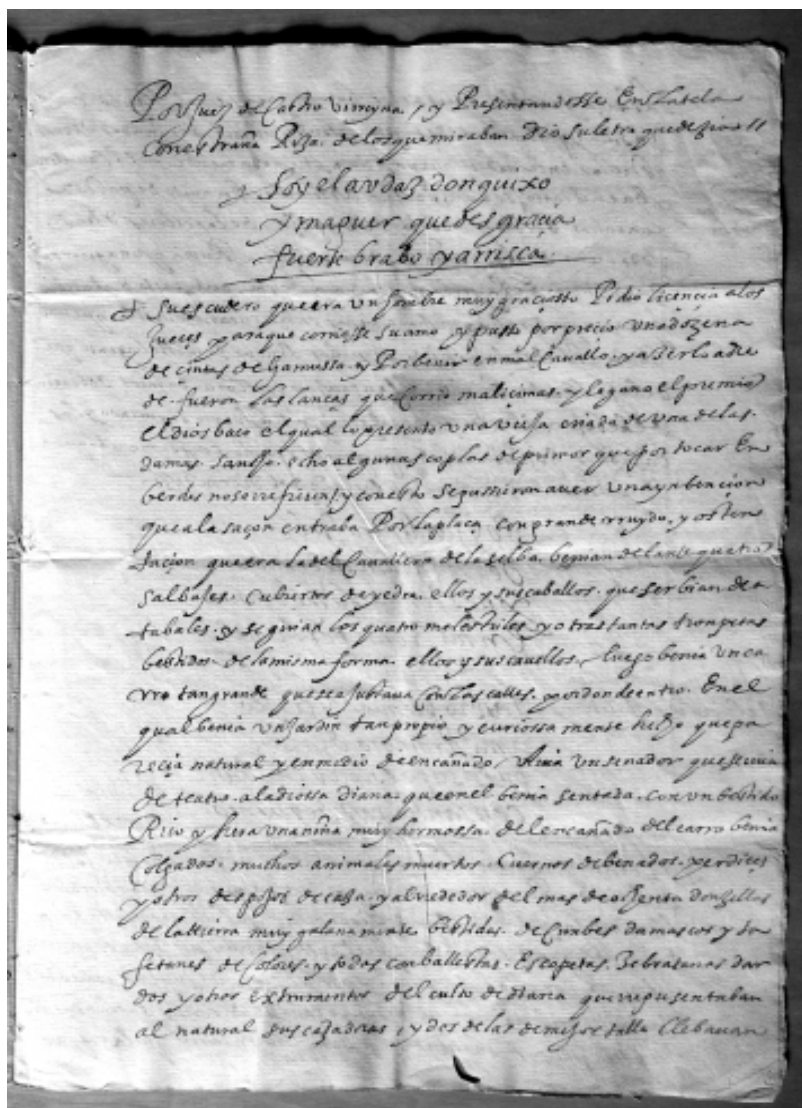 Por Juez de Castro virreyna, y Presentandosse En la tela
Con estraña Risa de los que miraban Dio su letra que dezia //
Soy el audaz don quixo
y maguer que desgracia
fuerte brabo y arrisca
Su escudero que era un hombre muy graciosso Pidio licencia a los
Jueces para que corriesse su amo y pusso por precio una dozena
de cintas de Gamussa y Por benir en mal Cavallo y azerlo adre
de fueron las lanças que Corrio malicimas y le gano el premio
el dios baco el qual lo presento a una vieja criada de una de las
damas. sancho echo algunas coplas de primor que por tocar En
berdes no se refieren y con esto se pussieron a ver una ynbencion
que a la saçon entraba Por la plaça con grande rruydo y osten
tacion que era la del Cavallero de la selba. benian delante quatro
Salbajes Cubiertos de yedra ellos y sus caballos que serbian de a
tabales y seguian los quatro menestriles y otras tantas trompetas
bestidos de la misma forma ellos y sus cavallos, luego benia un ca
rro tan grande que se ajustava Con las calles por donde entro. En el
qual benia un Jardin tan propio y curiossa mente hecho que pa
recia natural y en medio de encañado, avia un senador que servia
de teatro a la diossa diana que en el benia sentada con un bestido
Rico y hera una niña muy hermossa. del encañado del carro benia
Colgados muchos animales muertos Cuernos de benados perdices
y otros despojos de caza y alrededor del mas de ochenta donzellas
de la tierra muy galana mente bestidas de Cunbes damascos y ta
fetanes de Colores y todas con ballestas Escopetas Zebratanas dar
dos y otros extrumentos del culto de diana que representaban
al natural sus cazadoras, y dos de las de mejor talle llebavan